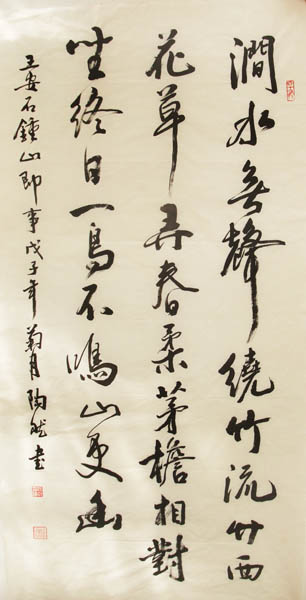 澗水無聲繞竹流竹西
花草弄春柔茅檐相對
坐終日一鳥不鳴山更幽
王安石鍾山即事戊子年菊月陶然書